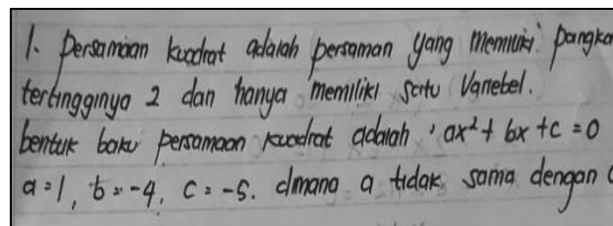 1. Persamaan kuadrat adalah persaman yang memiliki pangka
tertingginya 2 dan hanya memiliki satu Variebel.
bentuk baku persamaan kuadrat adalah, ax² + bx + c = 0
a = 1, b = -4, c = -5. dmana a tidak sama dengan 0